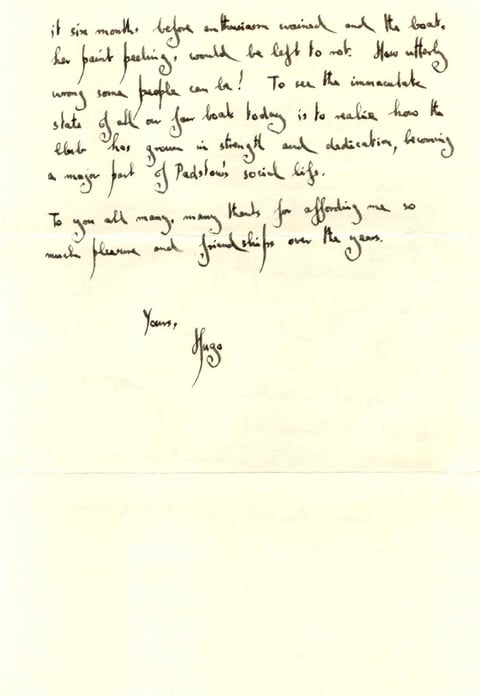 it six months before enthusiasm wained and the boat,
her paint peeling, would be left to rot. How utterly
wrong some people can be! To see the immaculate
state of all our four boats today is to realise how the
Club has grown in strength and dedication, becoming
a major part of Padstow's social life.
To you all many, many thanks for affording me so
much pleasure and friendships over the years.
Yours,
Hugo